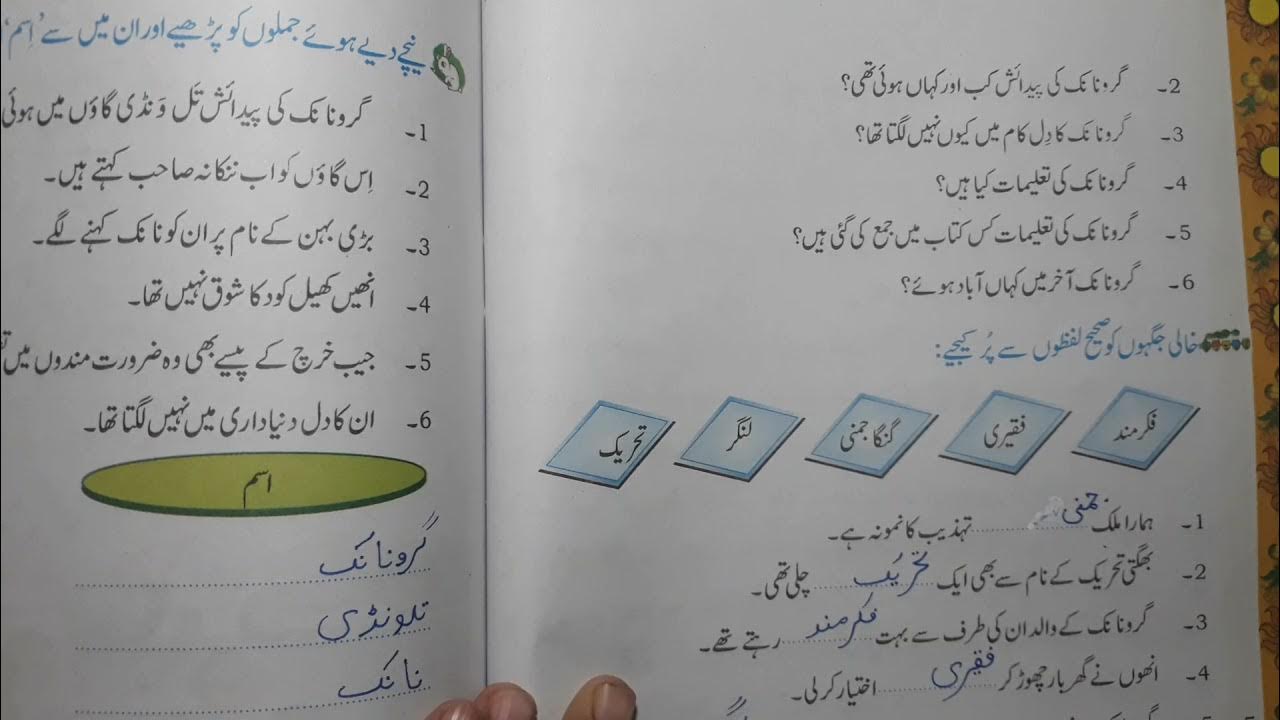 2۔ گرونانک کی پیدائش کب اور کہاں ہوئی تھی؟
3۔ گرونانک کا دِل کام میں کیوں نہیں لگتا تھا؟
4۔ گرونانک کی تعلیمات کیا ہیں؟
5۔ گرونانک کی تعلیمات کس کتاب میں جمع کی گئی ہیں؟
6۔ گرونانک آخر میں کہاں آباد ہوئے؟
خالی جگہوں کو صحیح لفظوں سے پُر کیجیے:
فکرمند فقیری گنگا جمنی لنگر تحریک
1۔ ہمارا ملک جمنی تہذیب کا نمونہ ہے۔
2۔ بھگتی تحریک کے نام سے بھی ایک تحریک چلی تھی۔
3۔ گرونانک کے والد ان کی طرف سے بہت فکرمند رہتے تھے۔
4۔ انھوں نے گھر بار چھوڑ کر فقیری اختیار کرلی۔
نیچے دیے ہوئے جملوں کو پڑھیے اور ان میں سے ’اِسم‘
1۔ گرونانک کی پیدائش تَل وَنڈی گاؤں میں ہوئی
2۔ اِس گاؤں کو اب ننکانہ صاحب کہتے ہیں۔
3۔ بڑی بہن کے نام پر ان کو نانک کہنے لگے۔
4۔ انھیں کھیل کود کا شوق نہیں تھا۔
5۔ جیب خرچ کے پیسے بھی وہ ضرورت مندوں میں
6۔ ان کا دل دنیاداری میں نہیں لگتا تھا۔
اسم
گرونانک
تلونڈی
نانک